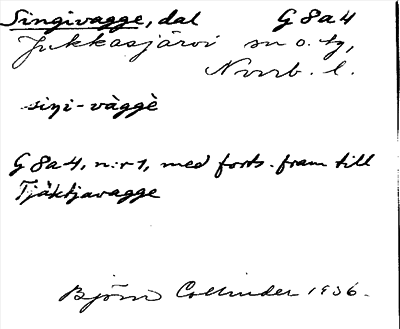 Singivagge, dal G8a4
Jukkasjärvi sn o. tg,
Norrb. l.
siŋi-vàggè
G8a4, n:r 1, med forts. fram till
Tjäktjavagge
Björn Collinder 1936.